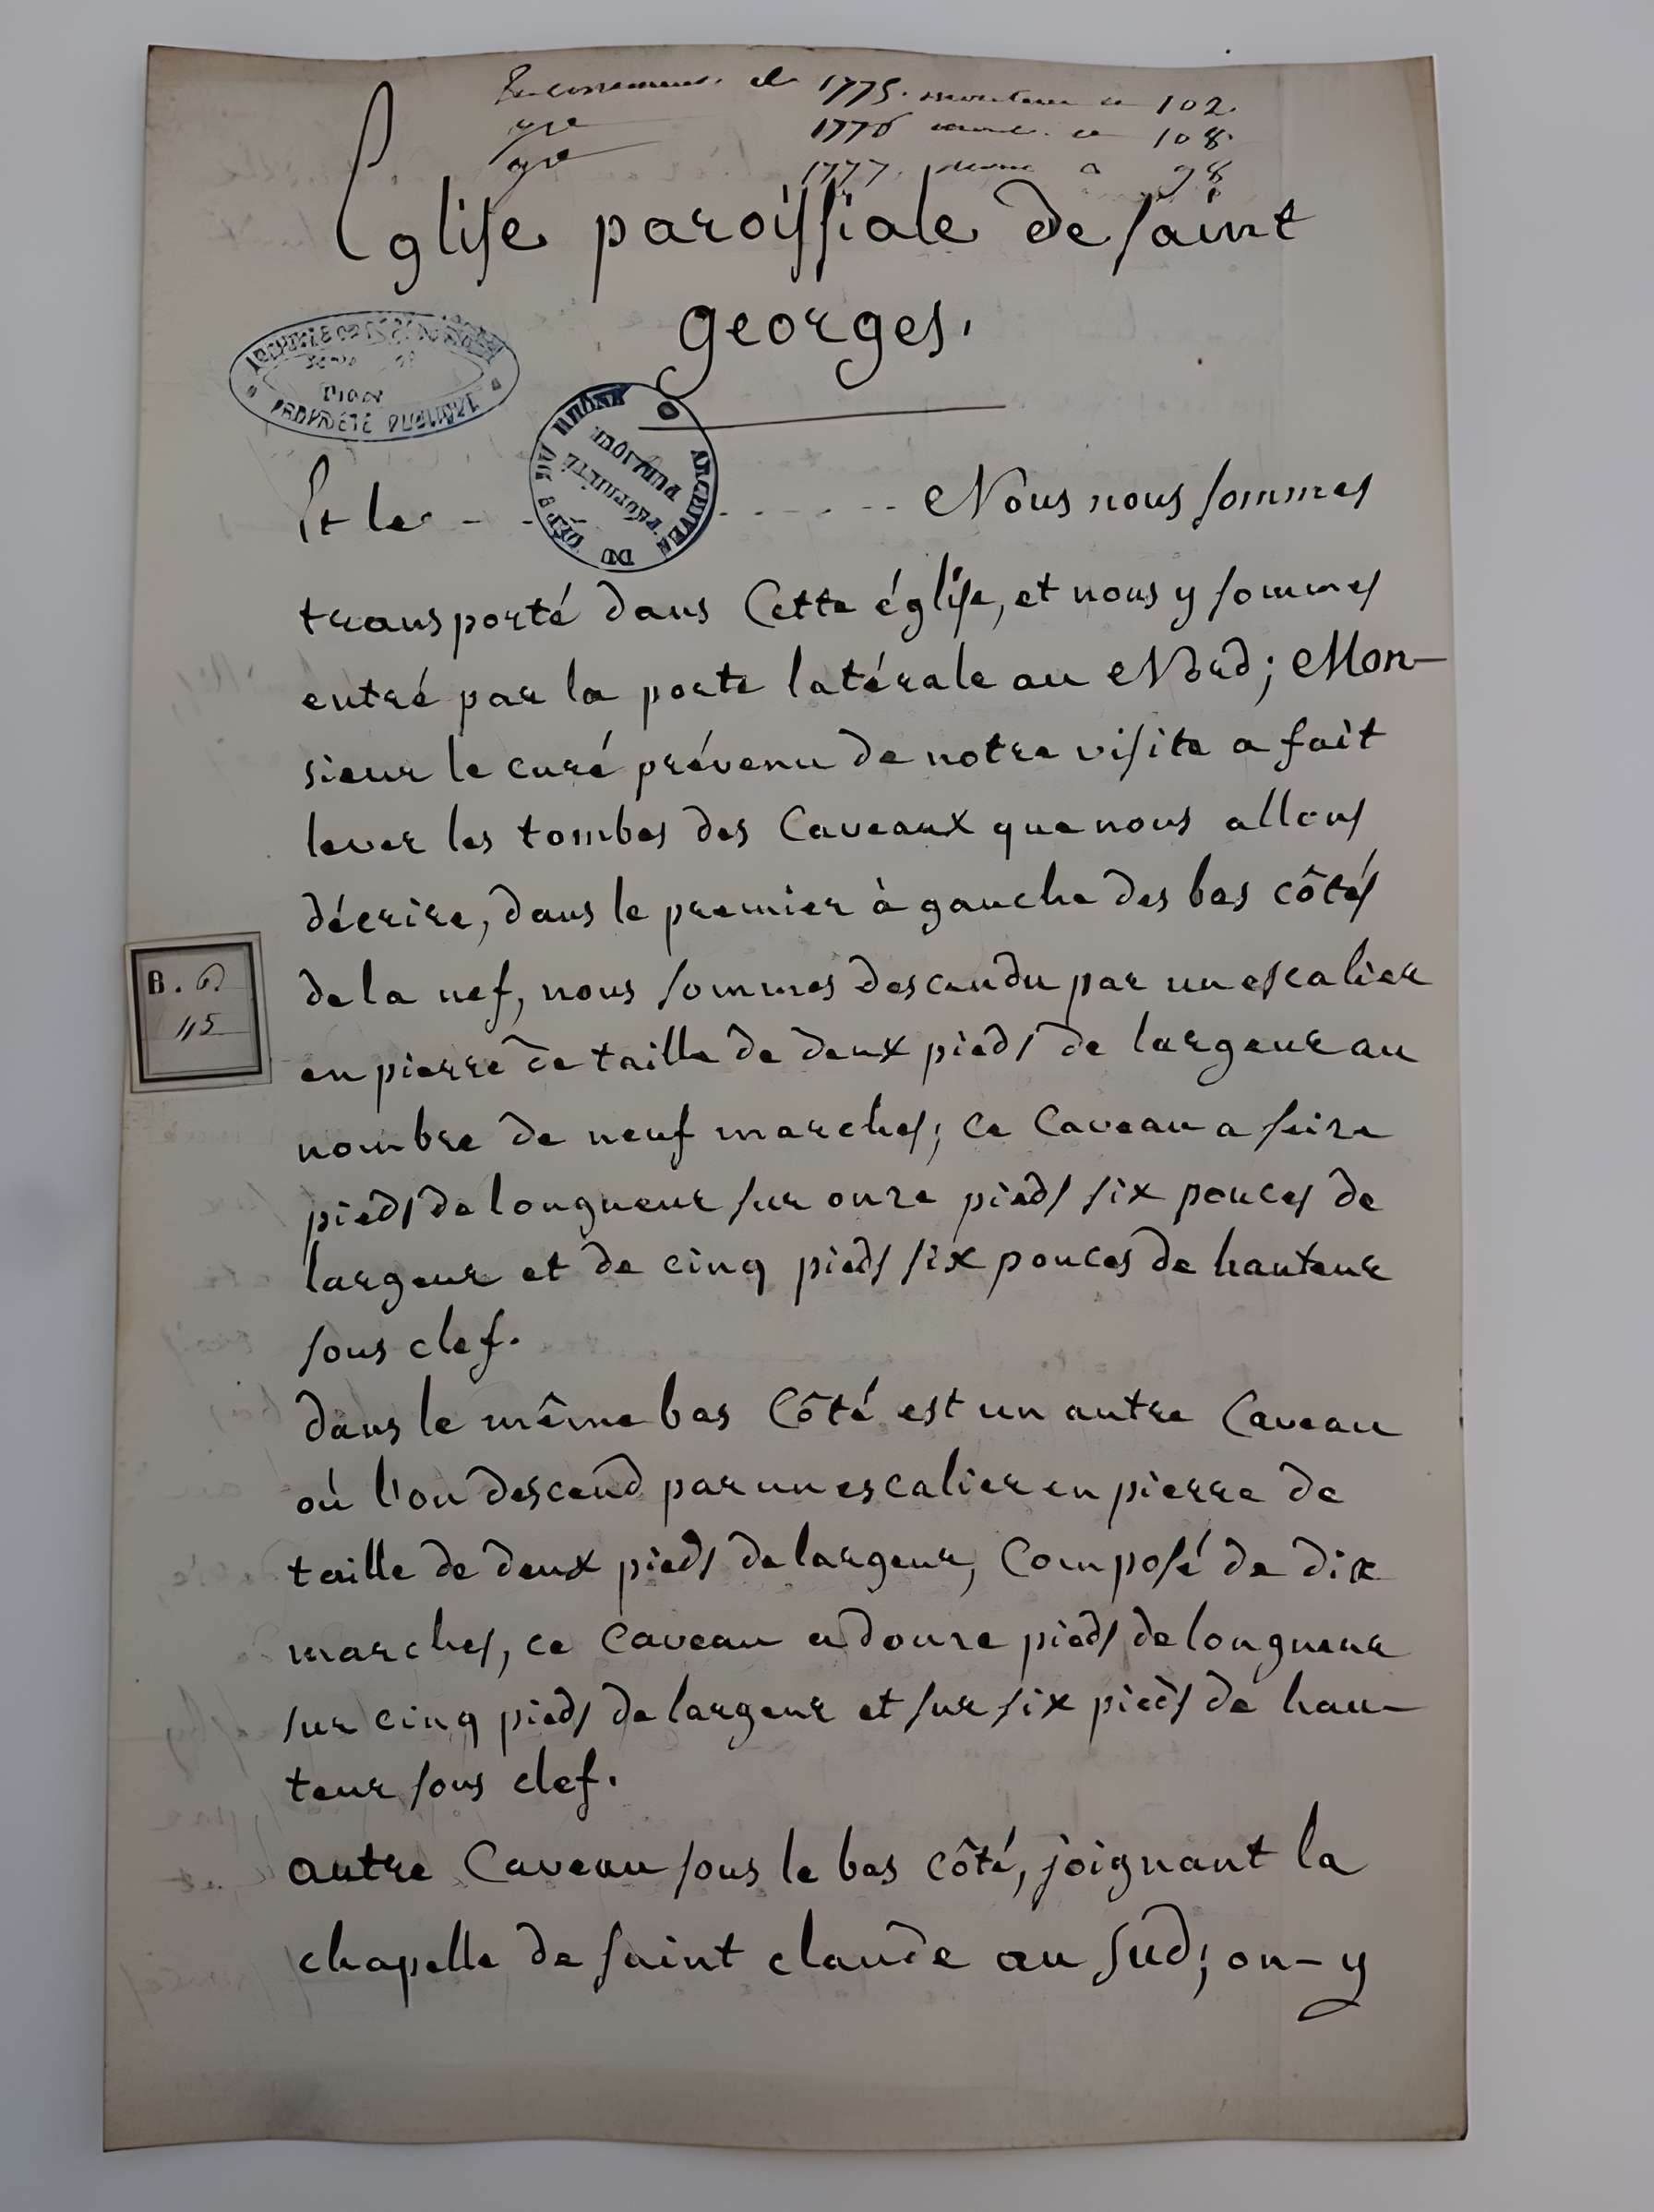 1775. 102.
1776 108.
1777. 98
Eglise paroissiale de saint
georges.
ARCHIVES DU DÉP. DU RHÔNE
PROPRIÉTÉ PUBLIQUE
PROPRIÉTÉ PUBLIQUE
Et le - - - - - - - - Nous nous sommes
transporté dans Cette église, et nous y sommes
entré par la porte latérale au Nord; Mon-
sieur le curé prévenu de notre visite a fait
lever les tombes des Caveaux que nous allons
décrire, dans le premier à gauche des bas côtés
de la nef, nous sommes descendu par un escalier
en pierre de taille de deux pieds de largeur au
nombre de neuf marches; ce Caveau a seize
pieds de longueur sur onze pieds six pouces de
largeur et de cinq pieds six pouces de hauteur
sous clef.
dans le même bas Côté est un autre Caveau
où l'on descend par un escalier en pierre de
taille de deux pieds de largeur, Composé de dix
marches, ce Caveau a douze pieds de longueur
sur cinq pieds de largeur et sur six pieds de hau-
teur sous clef.
autre Caveau sous le bas côté, joignant la
chapelle de saint claude au sud; on-y
B. P.
45